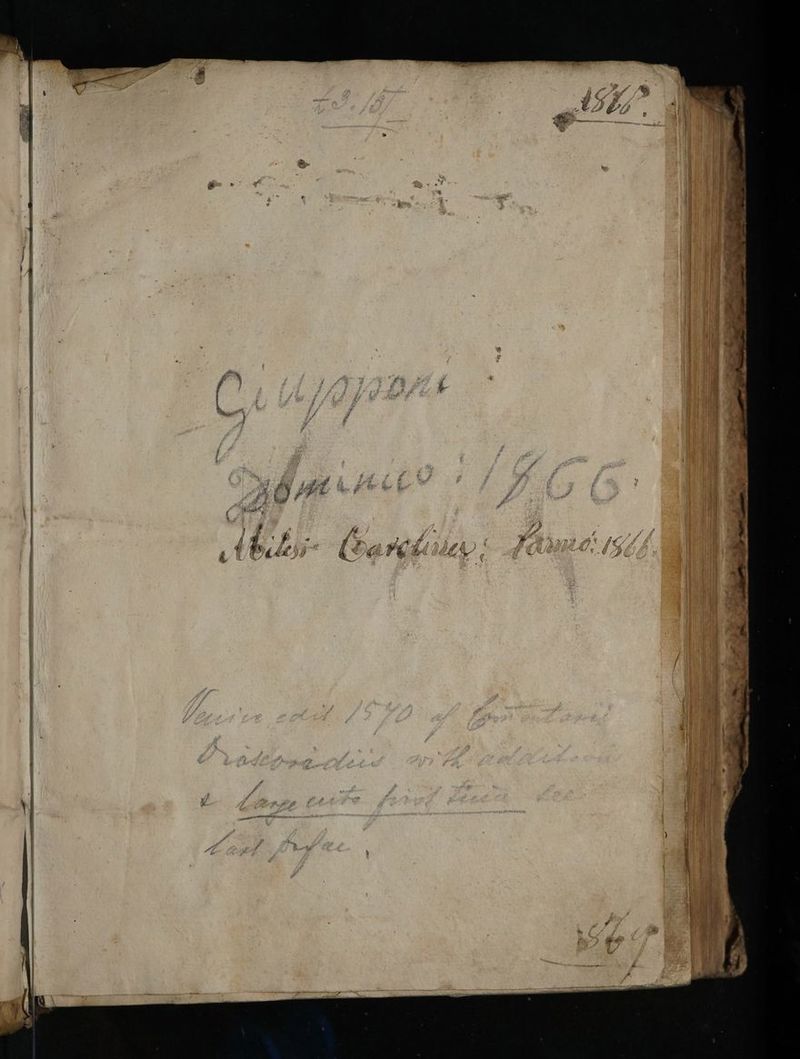 £3.15/-
1866.
Giupponi :
Dominico : 1866.
Milesi Carolina; Parmo: 1866.
Venice edit 1570 of Comentarii
Dioscoridiis with additions
& large cuts first time see
last prefac